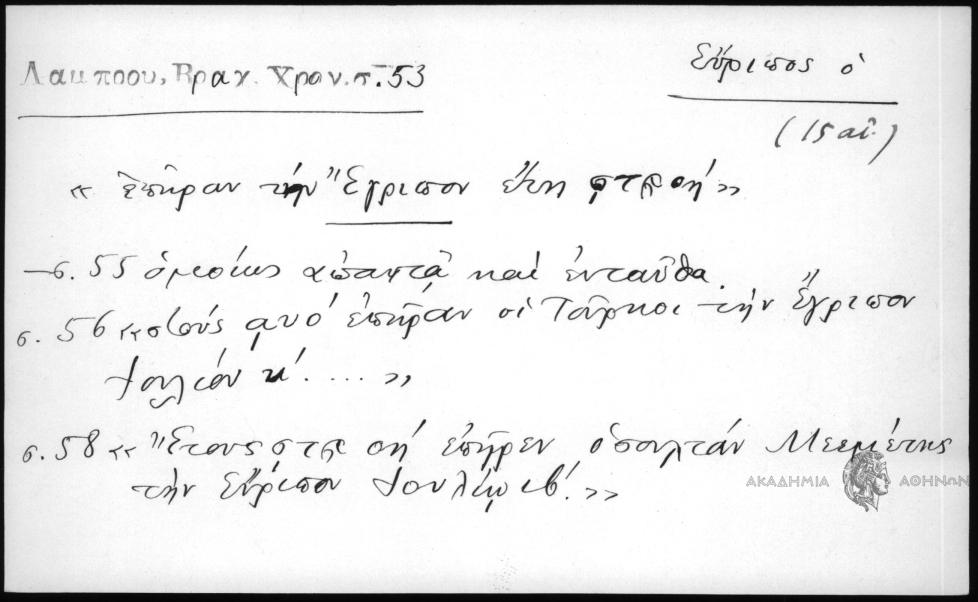 Λαμπρου, Βραχ. Χρον. σ. 53
Εὔριπος ὁ
(15 αἰ.)
« ἐπῆραν τὴν Ἔγριπον ἔτη ϛτλοή »
– σ. 55 ὁμοίως ἀπαντᾷ καὶ ἐνταῦθα.
σ. 56 « ͵αυό ἐπῆραν οἱ Τοῦρκοι τὴν Ἔγριπον
Ἰουλίου κ΄ .... »
σ. 58 « Ἔτους οή ἐπῆρεν ὁ σουλτὰν Μεεμέτης
τὴν Εὔριπον Ἰουλίῳ ιβ΄. »
ΑΚΑΔΗΜΙΑ ΑΘΗΝΩΝ